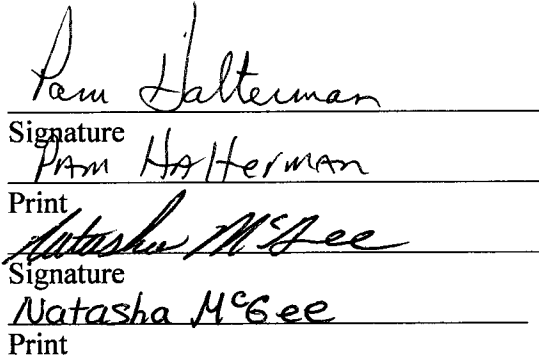 Pam Halterman
Signature
PAM HAlterMAN
Print
Natasha McGee
Signature
Natasha McGee
Print